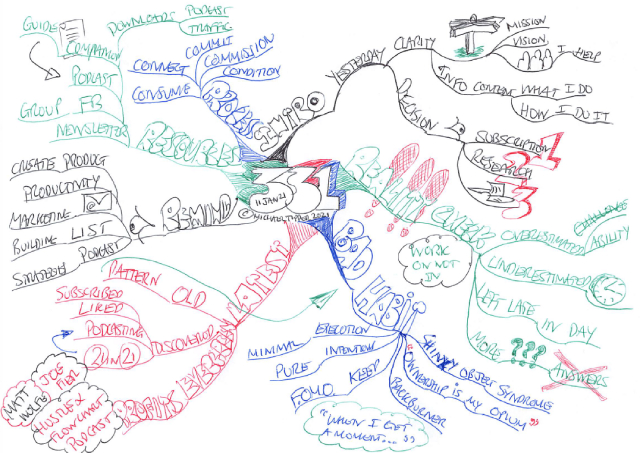 331
11 JAN 21
INTRO
YESTERDAY
CLARITY
MISSION
VISION
I HELP
INFO COMMON
WHAT I DO
HOW I DO IT
DECISION
SUBSCRIPTION
RESEARCH
1
3
REALITY CHECK
OVERESTIMATED
CHALLENGE
ABILITY
UNDERESTIMATED
LEFT LATE IN DAY
MORE ???
ANSWERS
WORK
ON NOT
IN
BAD HABIT
SHINY OBJECT SYNDROME
"OWNERSHIP IS MY OPIUM"
BACKBURNER
EXECUTION
MINIMAL
INTENTION
PURE
KEEP
F.O.M.O.
"WHEN I GET
A MOMENT..."
LATEST
OLD
PATTERN
EVERGREEN
DISCOVERED
SUBSCRIBED
LIKED
PODCASTING
2 IN 21
PROFITS
MATT
WOLFE
JOE
FIER
HUSTLE &
FLOWCHART
PODCAST
REMIND
CREATE PRODUCT
PRODUCTIVITY
MARKETING
BUILDING LIST
STRATEGY PODCAST
RESOURCES
COMPANION
GUIDE
DOWNLOADS
PODCAST
TRAFFIC
PODCAST
GROUP FB
NEWSLETTER
PROCESS
COMMIT
COMMISSION
CONDITION
CONNECT
CONSUME